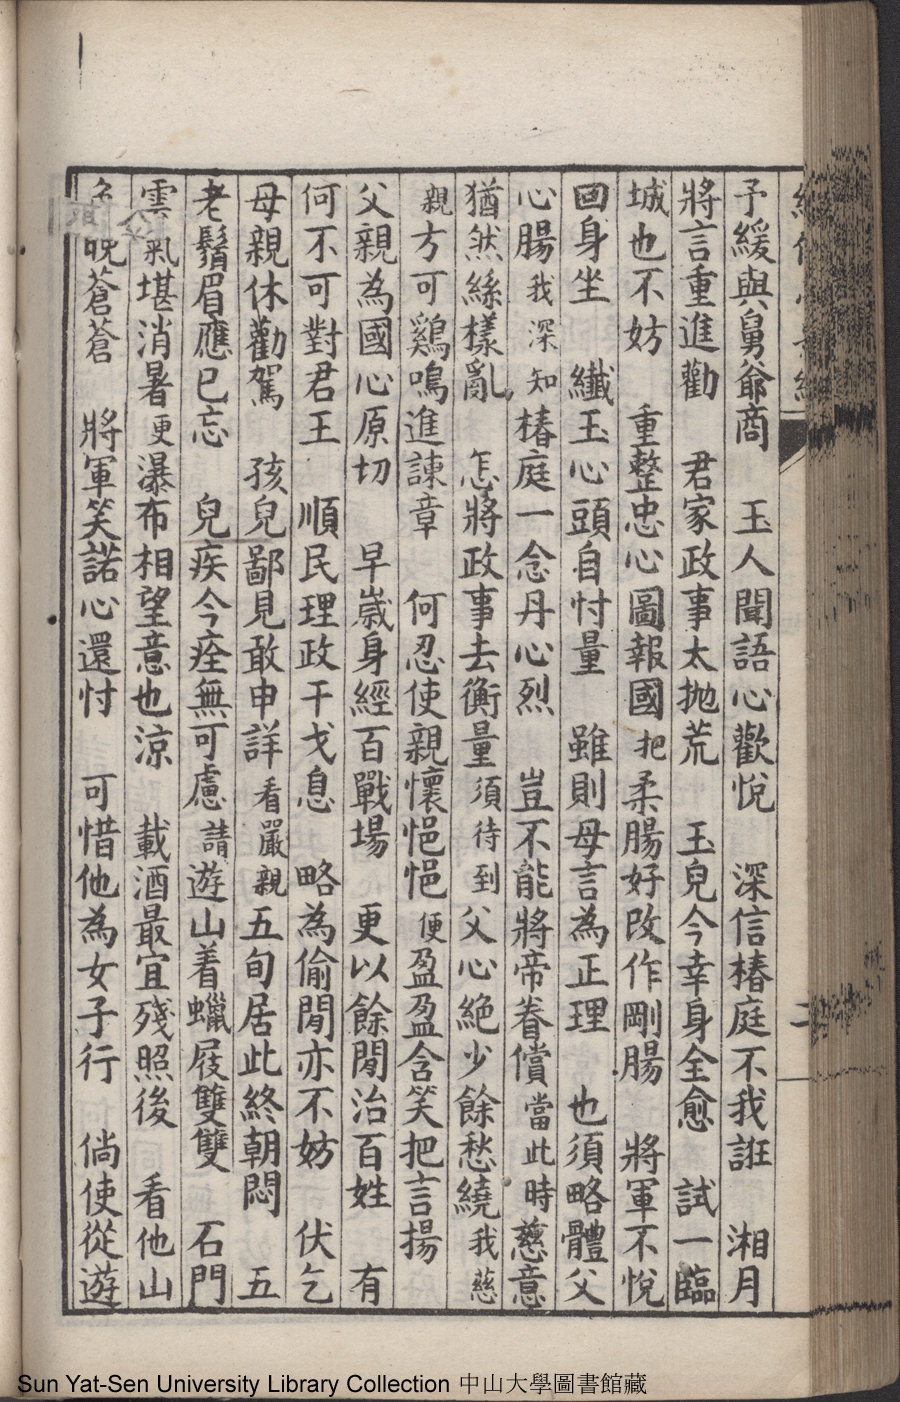 予緩與舅爺商　玉人聞語心歡悅　深信椿庭不我誑　湘月
將言重進勸　君家政事太抛荒　玉兒今幸身全愈　試一臨
城也不妨　重整忠心圖報國　把柔腸好改作剛腸　將軍不悅
回身坐　纖玉心頭自忖量　雖則母言為正理　也須略體父
心腸　我深知椿庭一念丹心烈　豈不能將帝眷償　當此時慈意
猶然絲樣亂　怎將政事去衡量　須待到父心絶少餘愁繞　我慈
親方可鷄鳴進諫章　何忍使親懷悒悒　便盈盈含笑把言揚
父親為國心原切　早嵗身經百戰場　更以餘閒治百姓　有
何不可對君王　順民理政干戈息　略為偷閒亦不妨　伏乞
母親休勸駕　孩兒鄙見敢申詳　看嚴親五旬居此終朝悶　五
老鬚眉應已忘　兒疾今痊無可慮　請遊山着蠟屐雙雙　石門
雲氣堪消暑　更瀑布相望意也涼　載酒最宜殘照後　看他山
晚蒼蒼　將軍笑諾心還忖　可惜他為女子行　倘使從遊
二
Sun Yat-Sen University Library Collection 中山大學圖書館藏